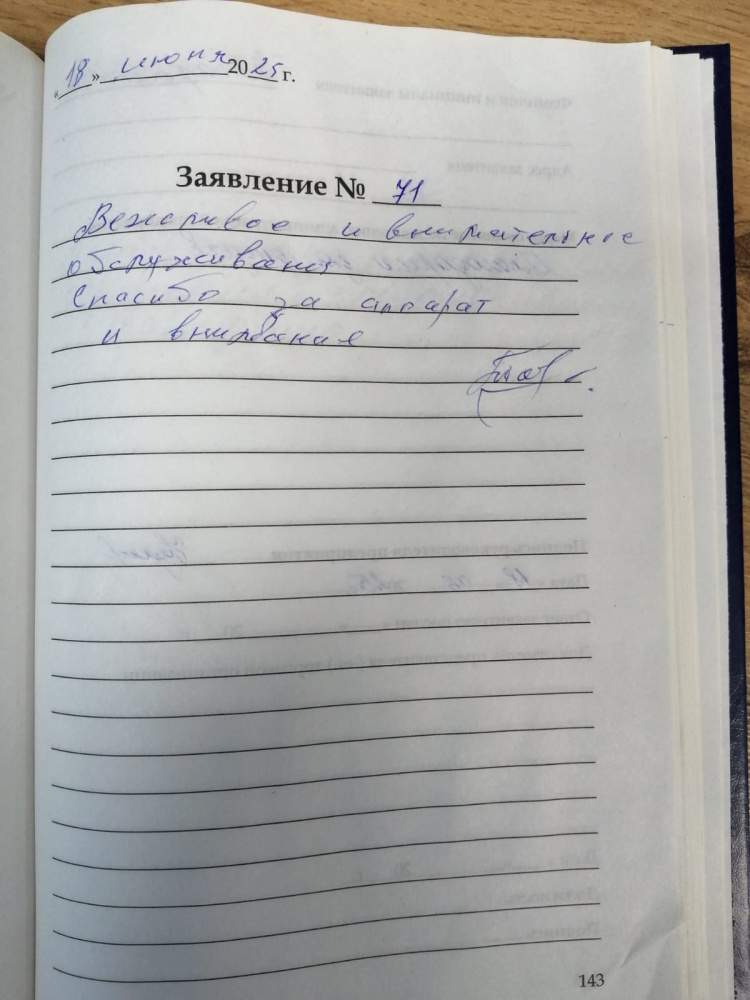 «18» июня 2025 г.
Заявление № 71
Вежливое и внимательное
обслуживания
Спасибо за аппарат
и внимания
143